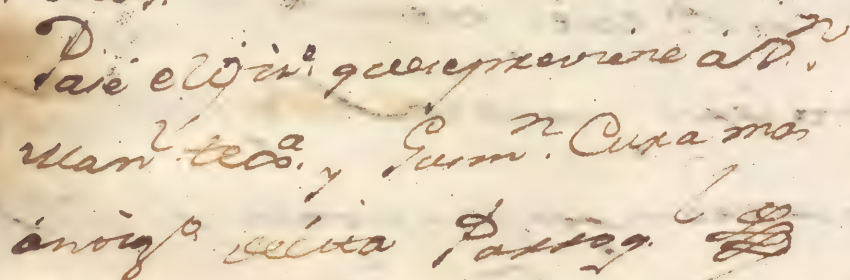 Pasé el Ofic.º que se previene á D.n
Man.l y Guzm.n Cura mas
antig.º de esta Parroq.